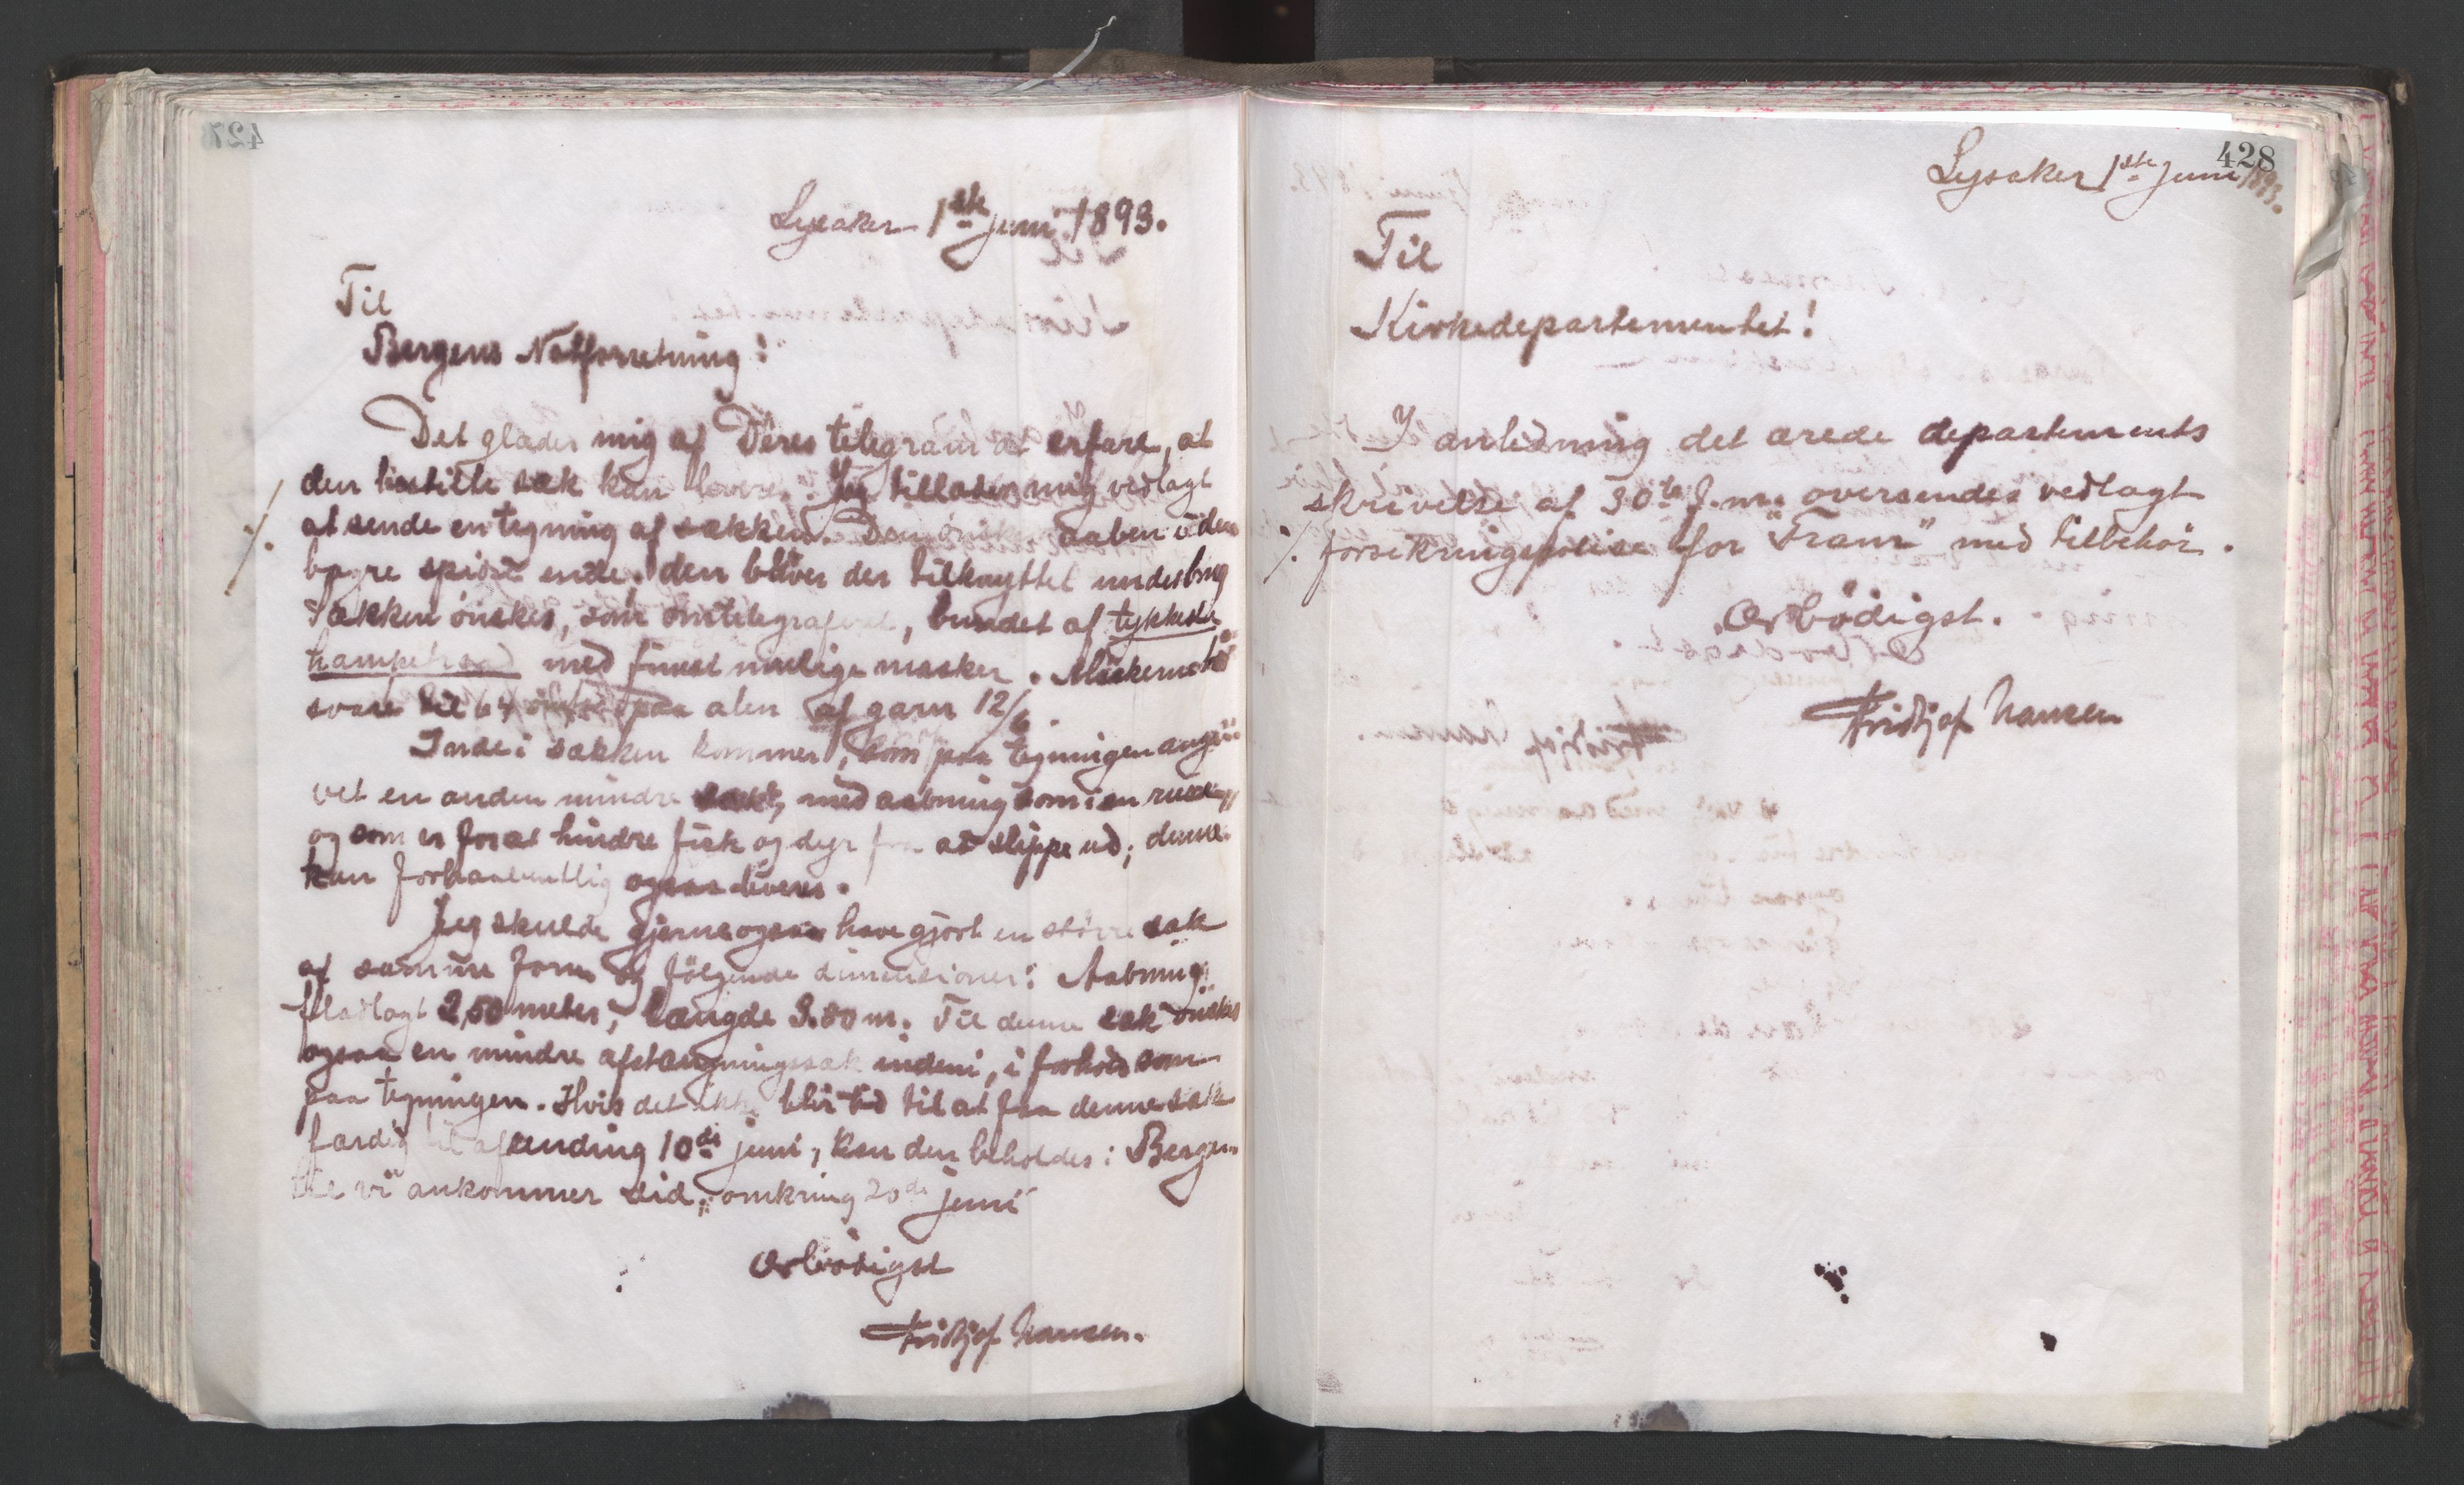 427
Lysaker 1ste juni 1893.
Til
Bergens Notforretning!
Det glæder mig af Deres telegram at erfare, at
den bestilte sæk kan leveres. Jeg tillader mig vedlagt
at sende en tegning af sækken. Den ønskes aaben i den
bagre spidse ende. den bliver der tilknyttet under brug
Sækken ønskes, som omtelegraferet, bundet af tykkeste
hampetraad med finest mulige masker. Maskerne bør
svare til 64 omfar paa alen af garn 12/6.
Inde i sækken kommer, som paa tegningen angi-
vet en anden mindre sæk, med aabning som i en ruse,
og som er for at hindre fisk og dyr fra at slippe ud; denne
kan forhaabentlig ogsaa leveres.
Jeg skulde gjerne ogsaa have gjort en større sæk
af samme form og følgende dimensioner: Aabning
fladlagt 2,50 meter, længde 3.80 m. Til denne sæk ønskes
ogsaa en mindre afstængningssæk indeni, i forhold som
paa tegningen. Hvis det ikke blir tid til at faa denne sæk
færdig til afsending 10de juni, kan den beholdes i Bergen
til vi ankommer did, omkring 20de juni
Ærbødigst
Fridtjof Nansen.
428
Lysaker 1ste juni 1893.
Til
Kirkedepartementet!
I anledning det ærede departements
skrivelse af 30te f.m. oversendes vedlagt
./. forsikringspolise for "Fram" med tilbehør.
Ærbødigst.
Fridtjof Nansen